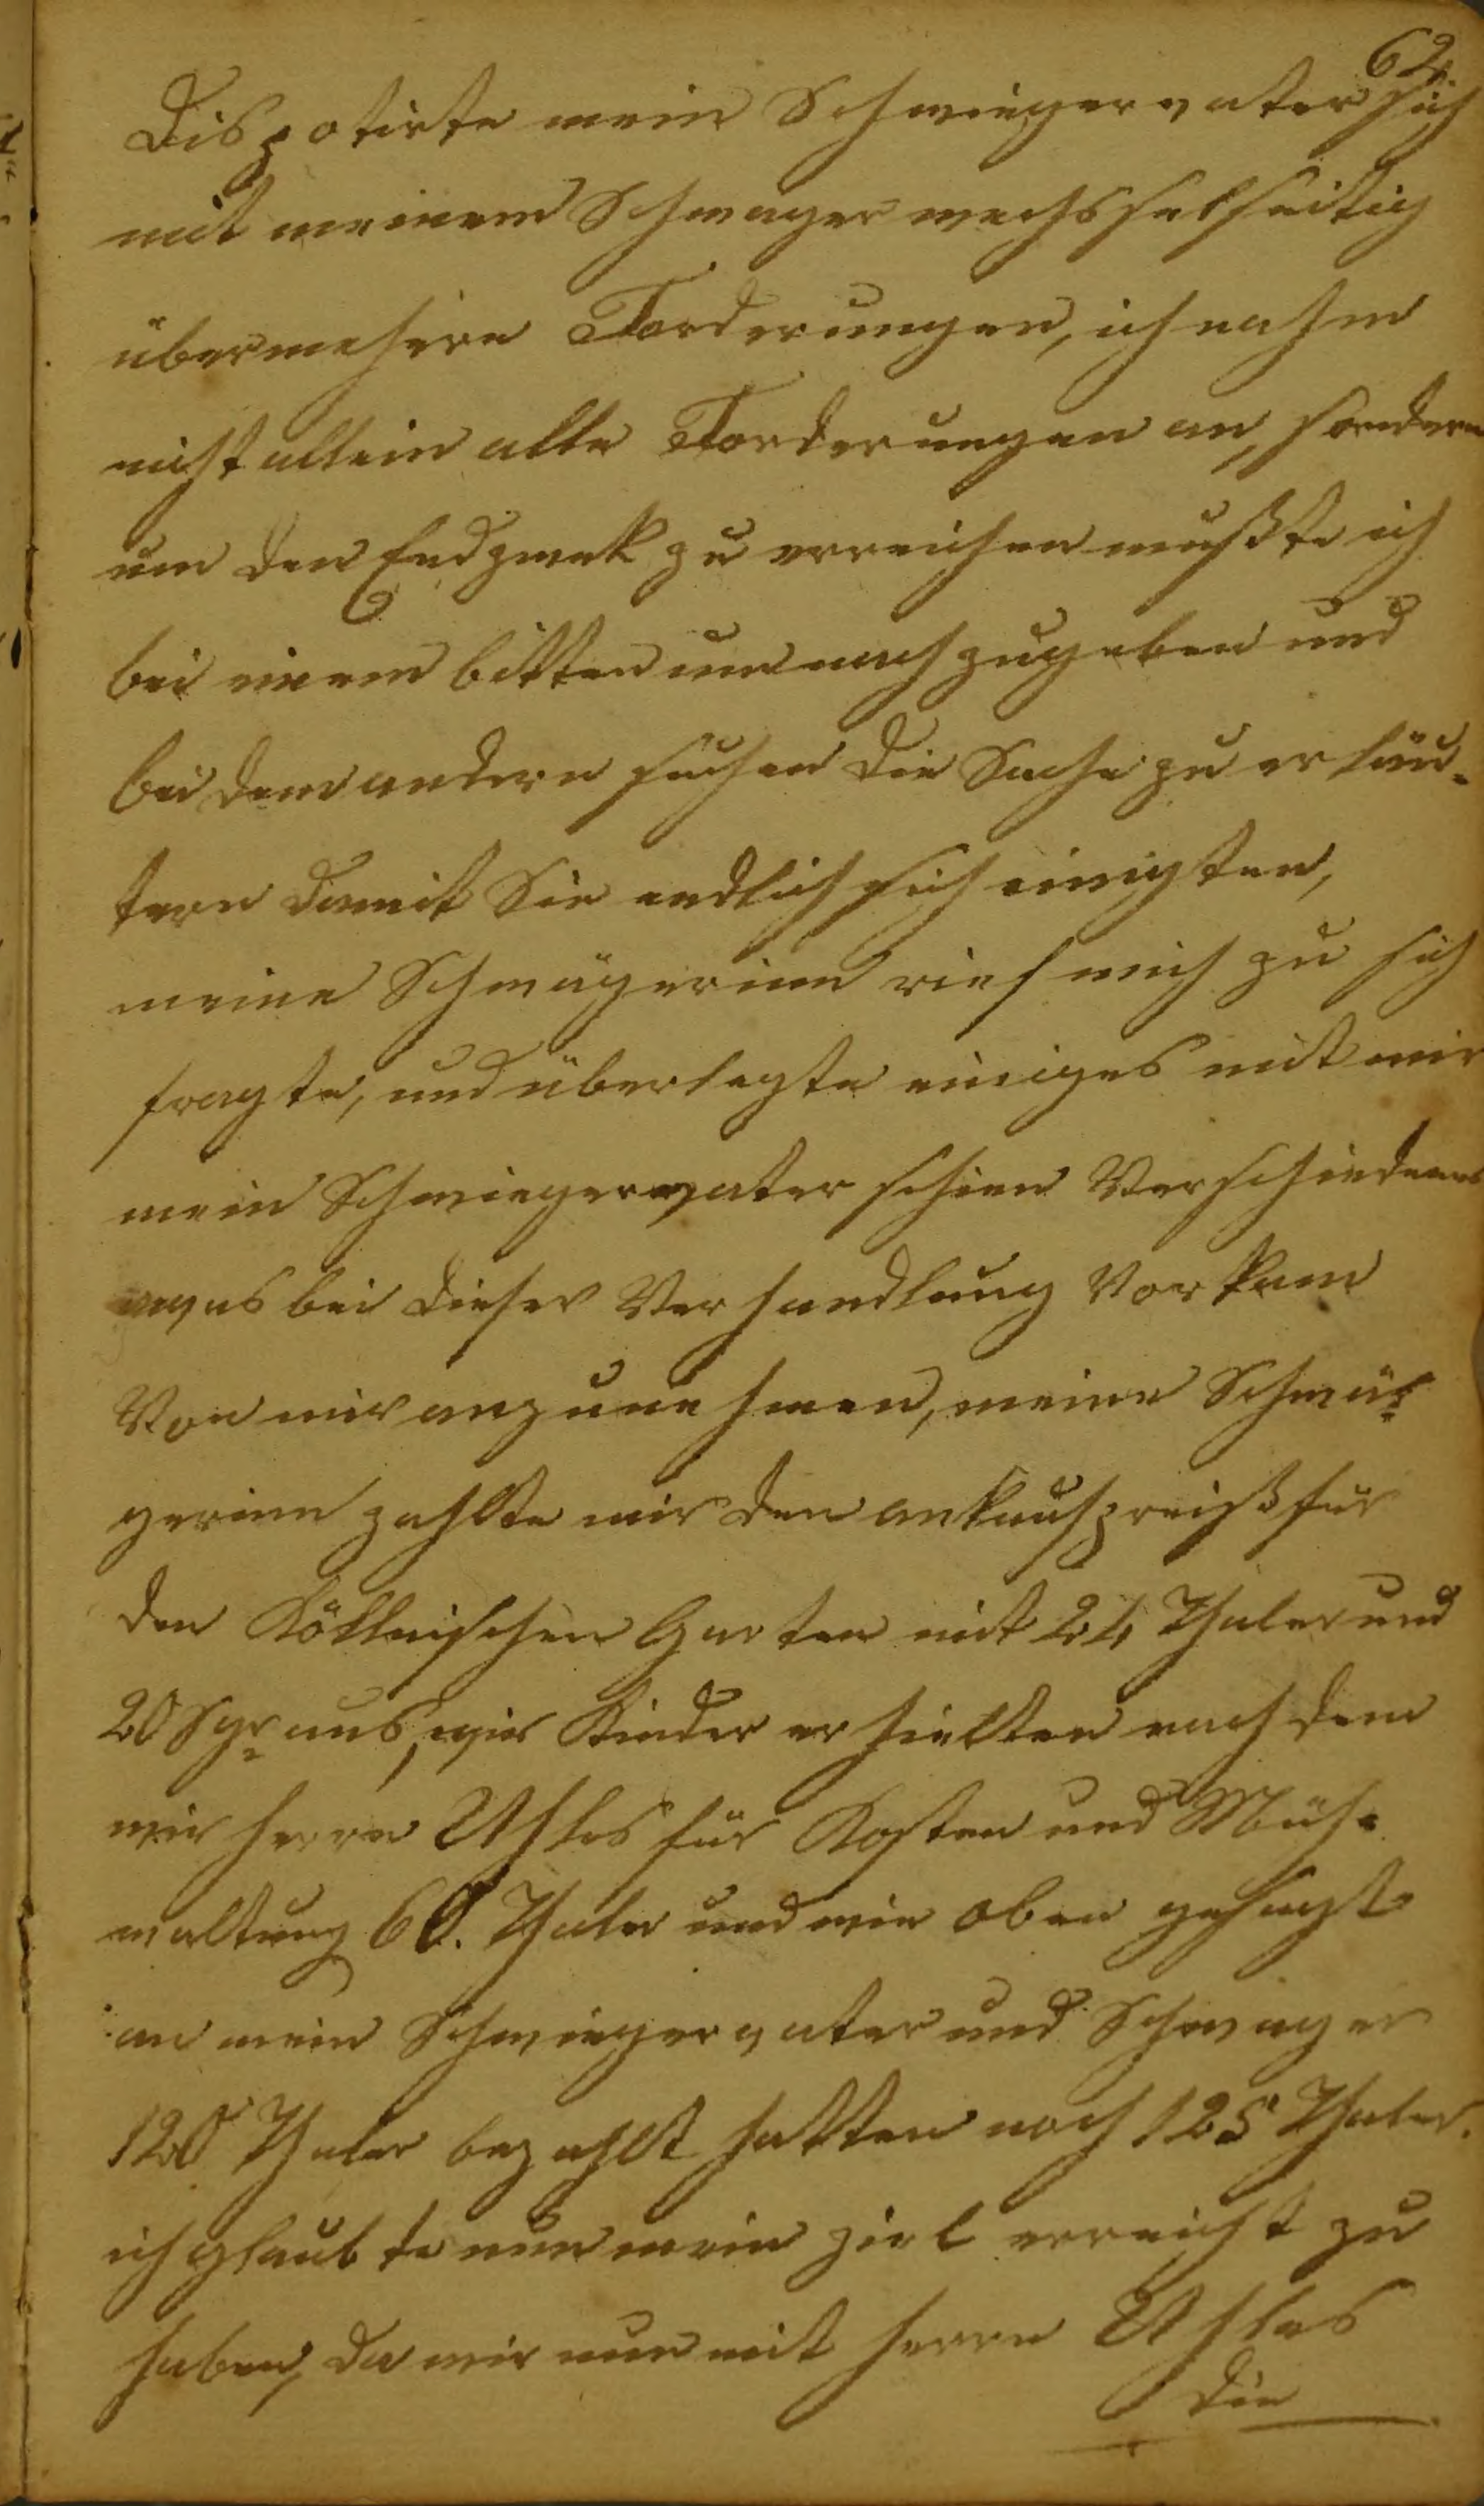 62.
Dispotirte mein Schwiegervater sich
mit meinem Schwager wechsselseitig
über mehrere Forderungen, ich nahm
nicht allein alle Forderungen an, sondern
um den Endzwek zu erreichen mußte ich
bei einem bitten um nachzugeben und
bei dem andern suchen die Sache zu erläu-
tern damit Sie endlich sich einigten,
meine Schwägerinn rief mich zu sich
fragte, und überlegte einiges mit mir
mein Schwiegervater schien Verschiedenes
was bei dieser Verhandlung Vorkam
Von mir anzunehmen, meine Schwä-
gerinn zahlte mir den ankaufspreiß für
den Köllnischen Garten mit 24 Thaler und
20 Sgr aus, wir Kinder erhielten nachdem
wir Herrn Uhles für Kosten und Mühe
waltung 60. Thaler und wie oben gesagt
an mein Schwiegervater und Schwager
120 Thaler bezahlt hatten noch 125 Thaler.
ich glaubte nun mein ziel erreicht zu
haben, da wir nun mit Herrn Uhles
die